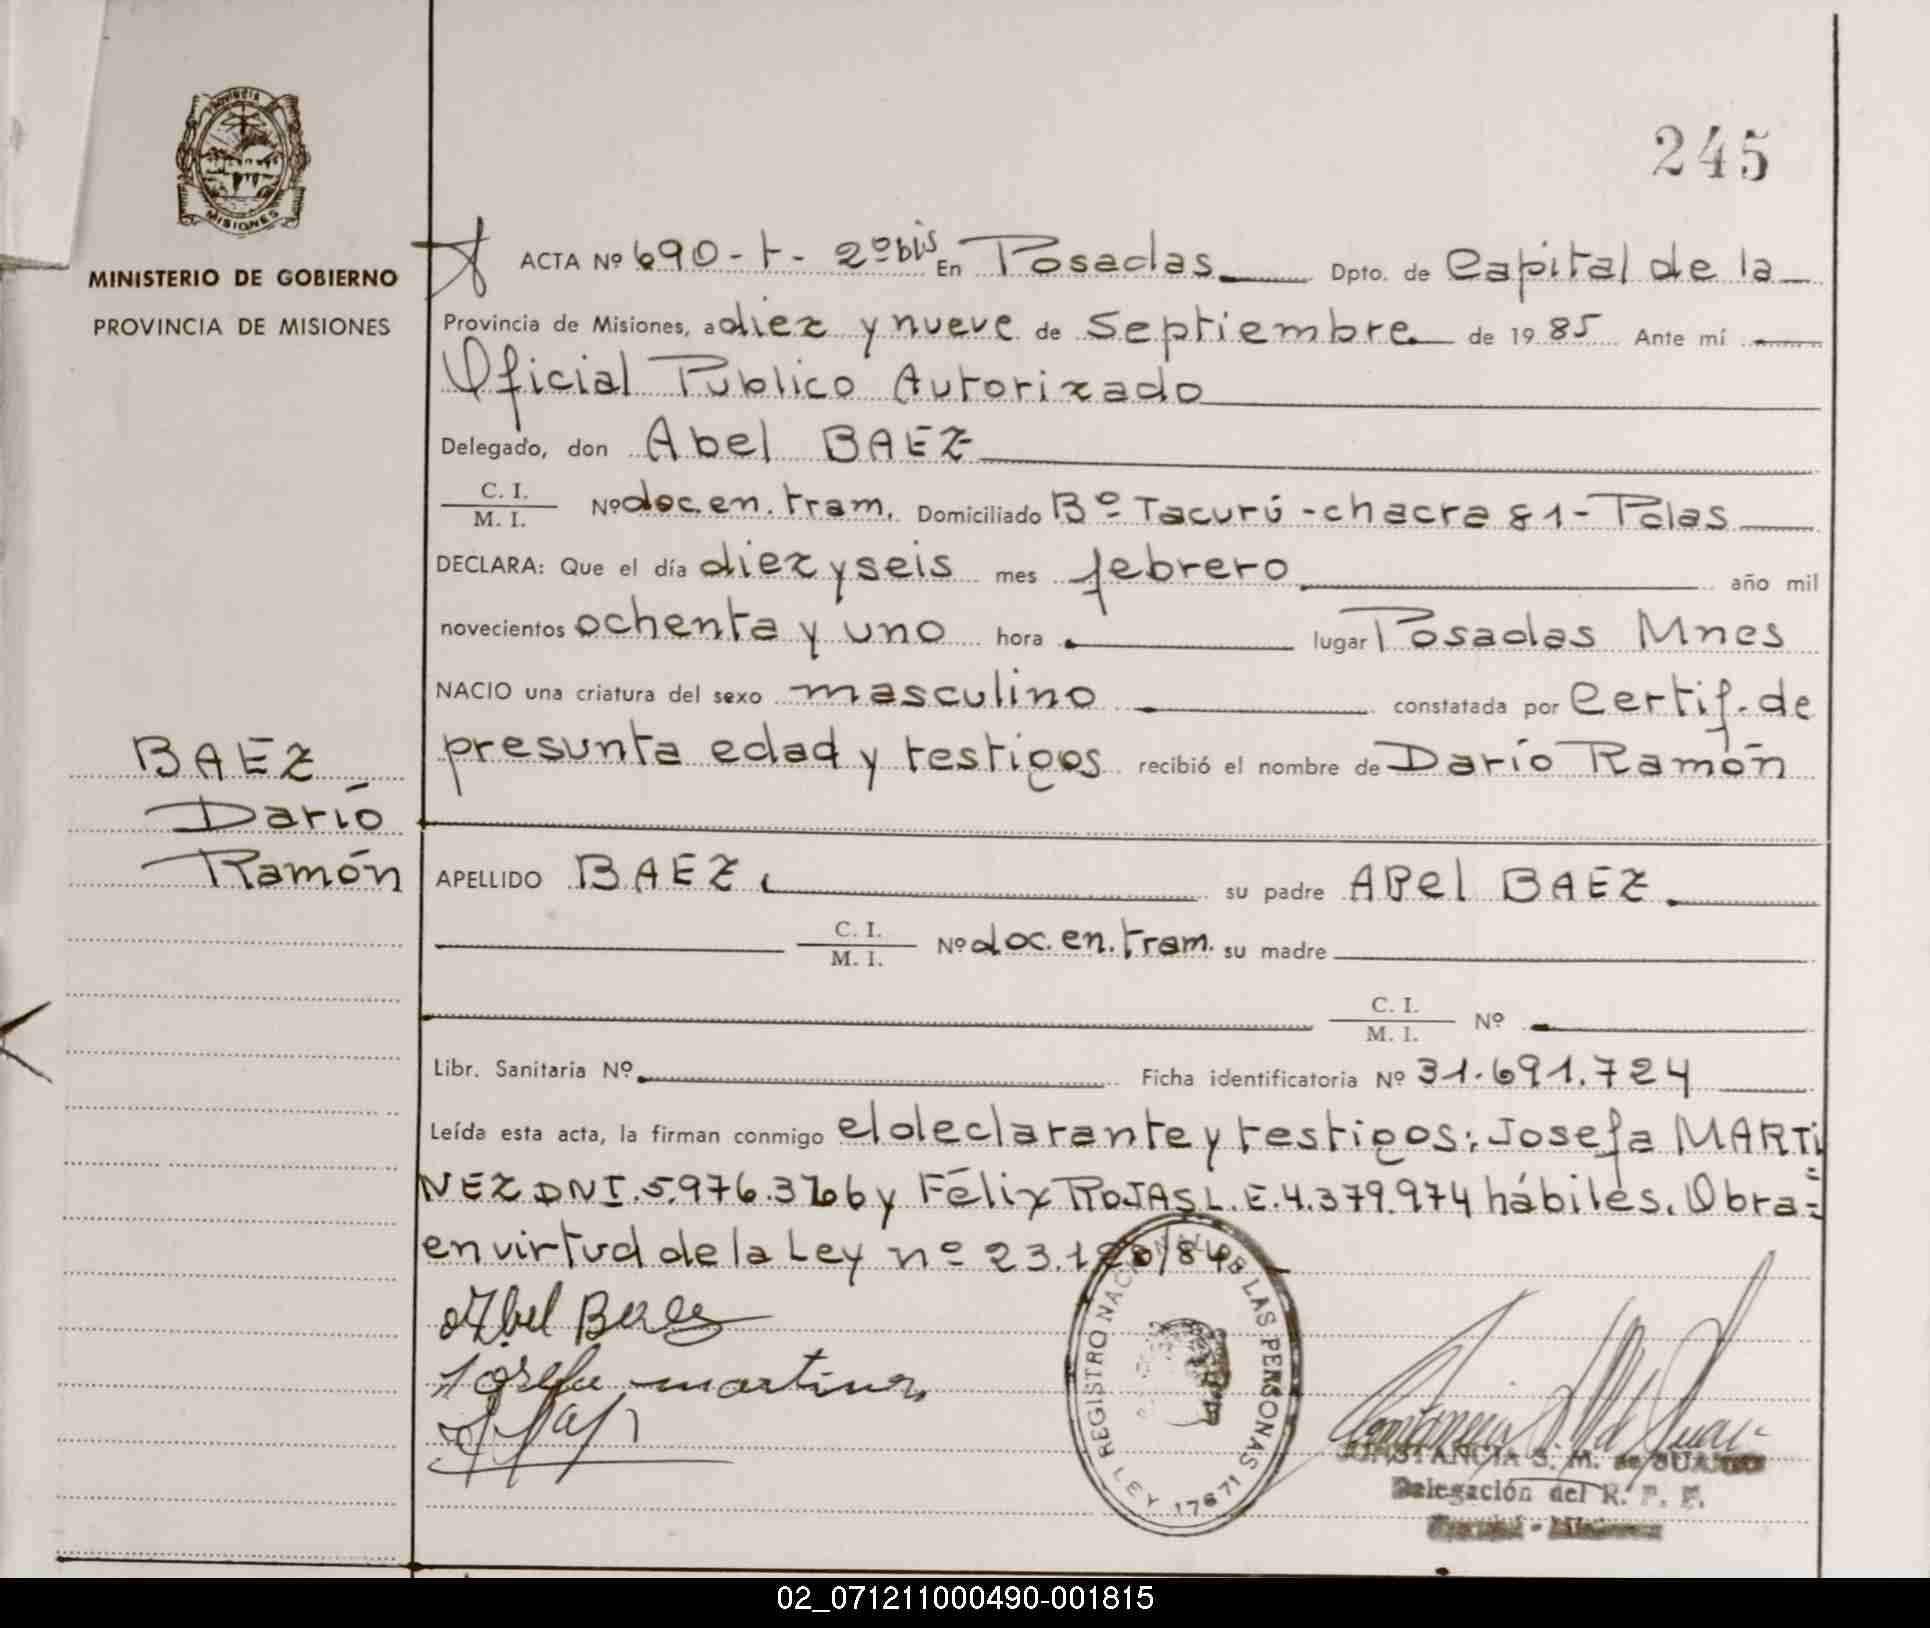 245
PROVINCIA
MISIONES
MINISTERIO DE GOBIERNO
PROVINCIA DE MISIONES
ACTA Nº 690-t- 2º bis En Posadas Dpto. de Capital de la
Provincia de Misiones, a diez y nueve de Septiembre de 1985 Ante mí
Oficial Publico Autorizado
Delegado, don Abel BAEZ
C. I.
M. I.
Nº doc.en.tram. Domiciliado Bº Tacurú -chacra 81- Pdas
DECLARA: Que el día diez y seis mes febrero año mil
novecientos ochenta y uno hora lugar Posadas Mnes
NACIO una criatura del sexo masculino constatada por Certif. de
presunta edad y testigos recibió el nombre de Darío Ramón
BAEZ
Darío
Ramón
APELLIDO BAEZ su padre ABel BAEZ
C. I.
M. I.
Nº doc.en.tram. su madre
C. I.
M. I.
Nº
Libr. Sanitaria Nº Ficha identificatoria Nº 31.691.724
Leída esta acta, la firman conmigo el declarante y testigos: Josefa MARTI
NEZ DNI.5.976.3 y Félix ROJAS L.E.4.379.974 hábiles. Obra=
en virtud de la Ley nº 23.1 /84.
Abel Baez
Josefa martinez
REGISTRO NACIONAL DE LAS PERSONAS
LEY 17671
CONSTANCIA S. M. de
Delegación del R. P. P.
Misiones
02_071211000490-001815